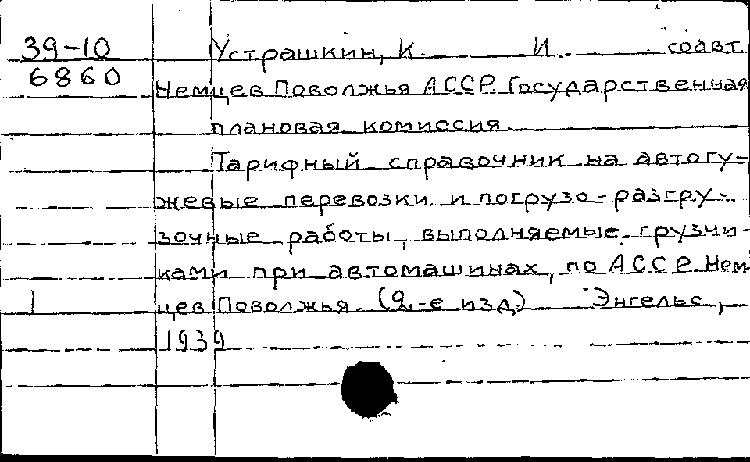 39-10 Устрашкин, К. И. соавт.
6860
Немцев Поволжья АССР. Государственная
плановая комиссия.
Тарифный справочник на автогу=
жевые перевозки и погрузо-разгру-
зочные работы, выполняемые грузчи-
ками при автомашинах, по АССР Нем
1 цев Поволжья. (2-е изд.) Энгельс,
1939